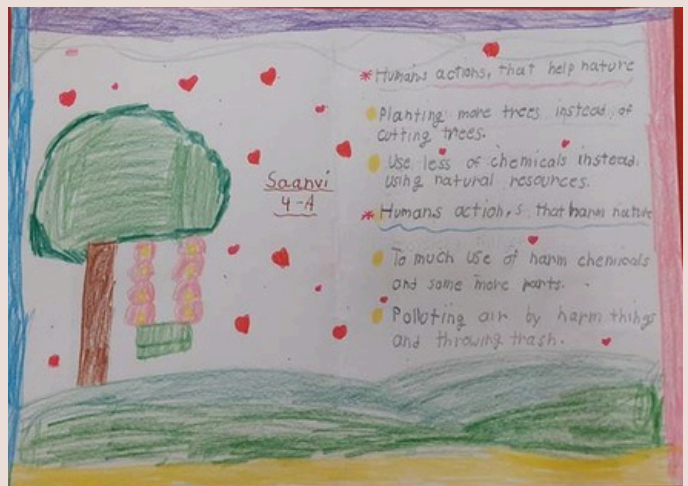 Saanvi
4-A
* Humans actions, that help nature
Planting more trees instead of
cutting trees.
Use less of chemicals instead.
using natural resources.
* Humans action,s that harm nature
To much use of harm chemicals
and some more parts.
Polluting air by harm things
and throwing trash.